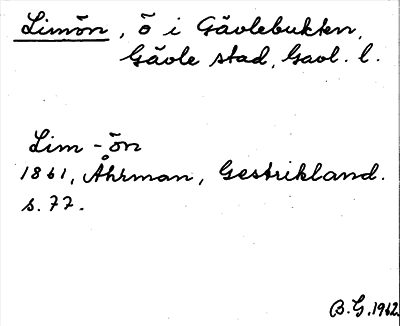 Limön, ö i Gävlebukten,
Gävle stad, Gävl. l.
Lim-ön
1861, Åhrman, Gestrikland.
s. 77.
B.G. 1962.